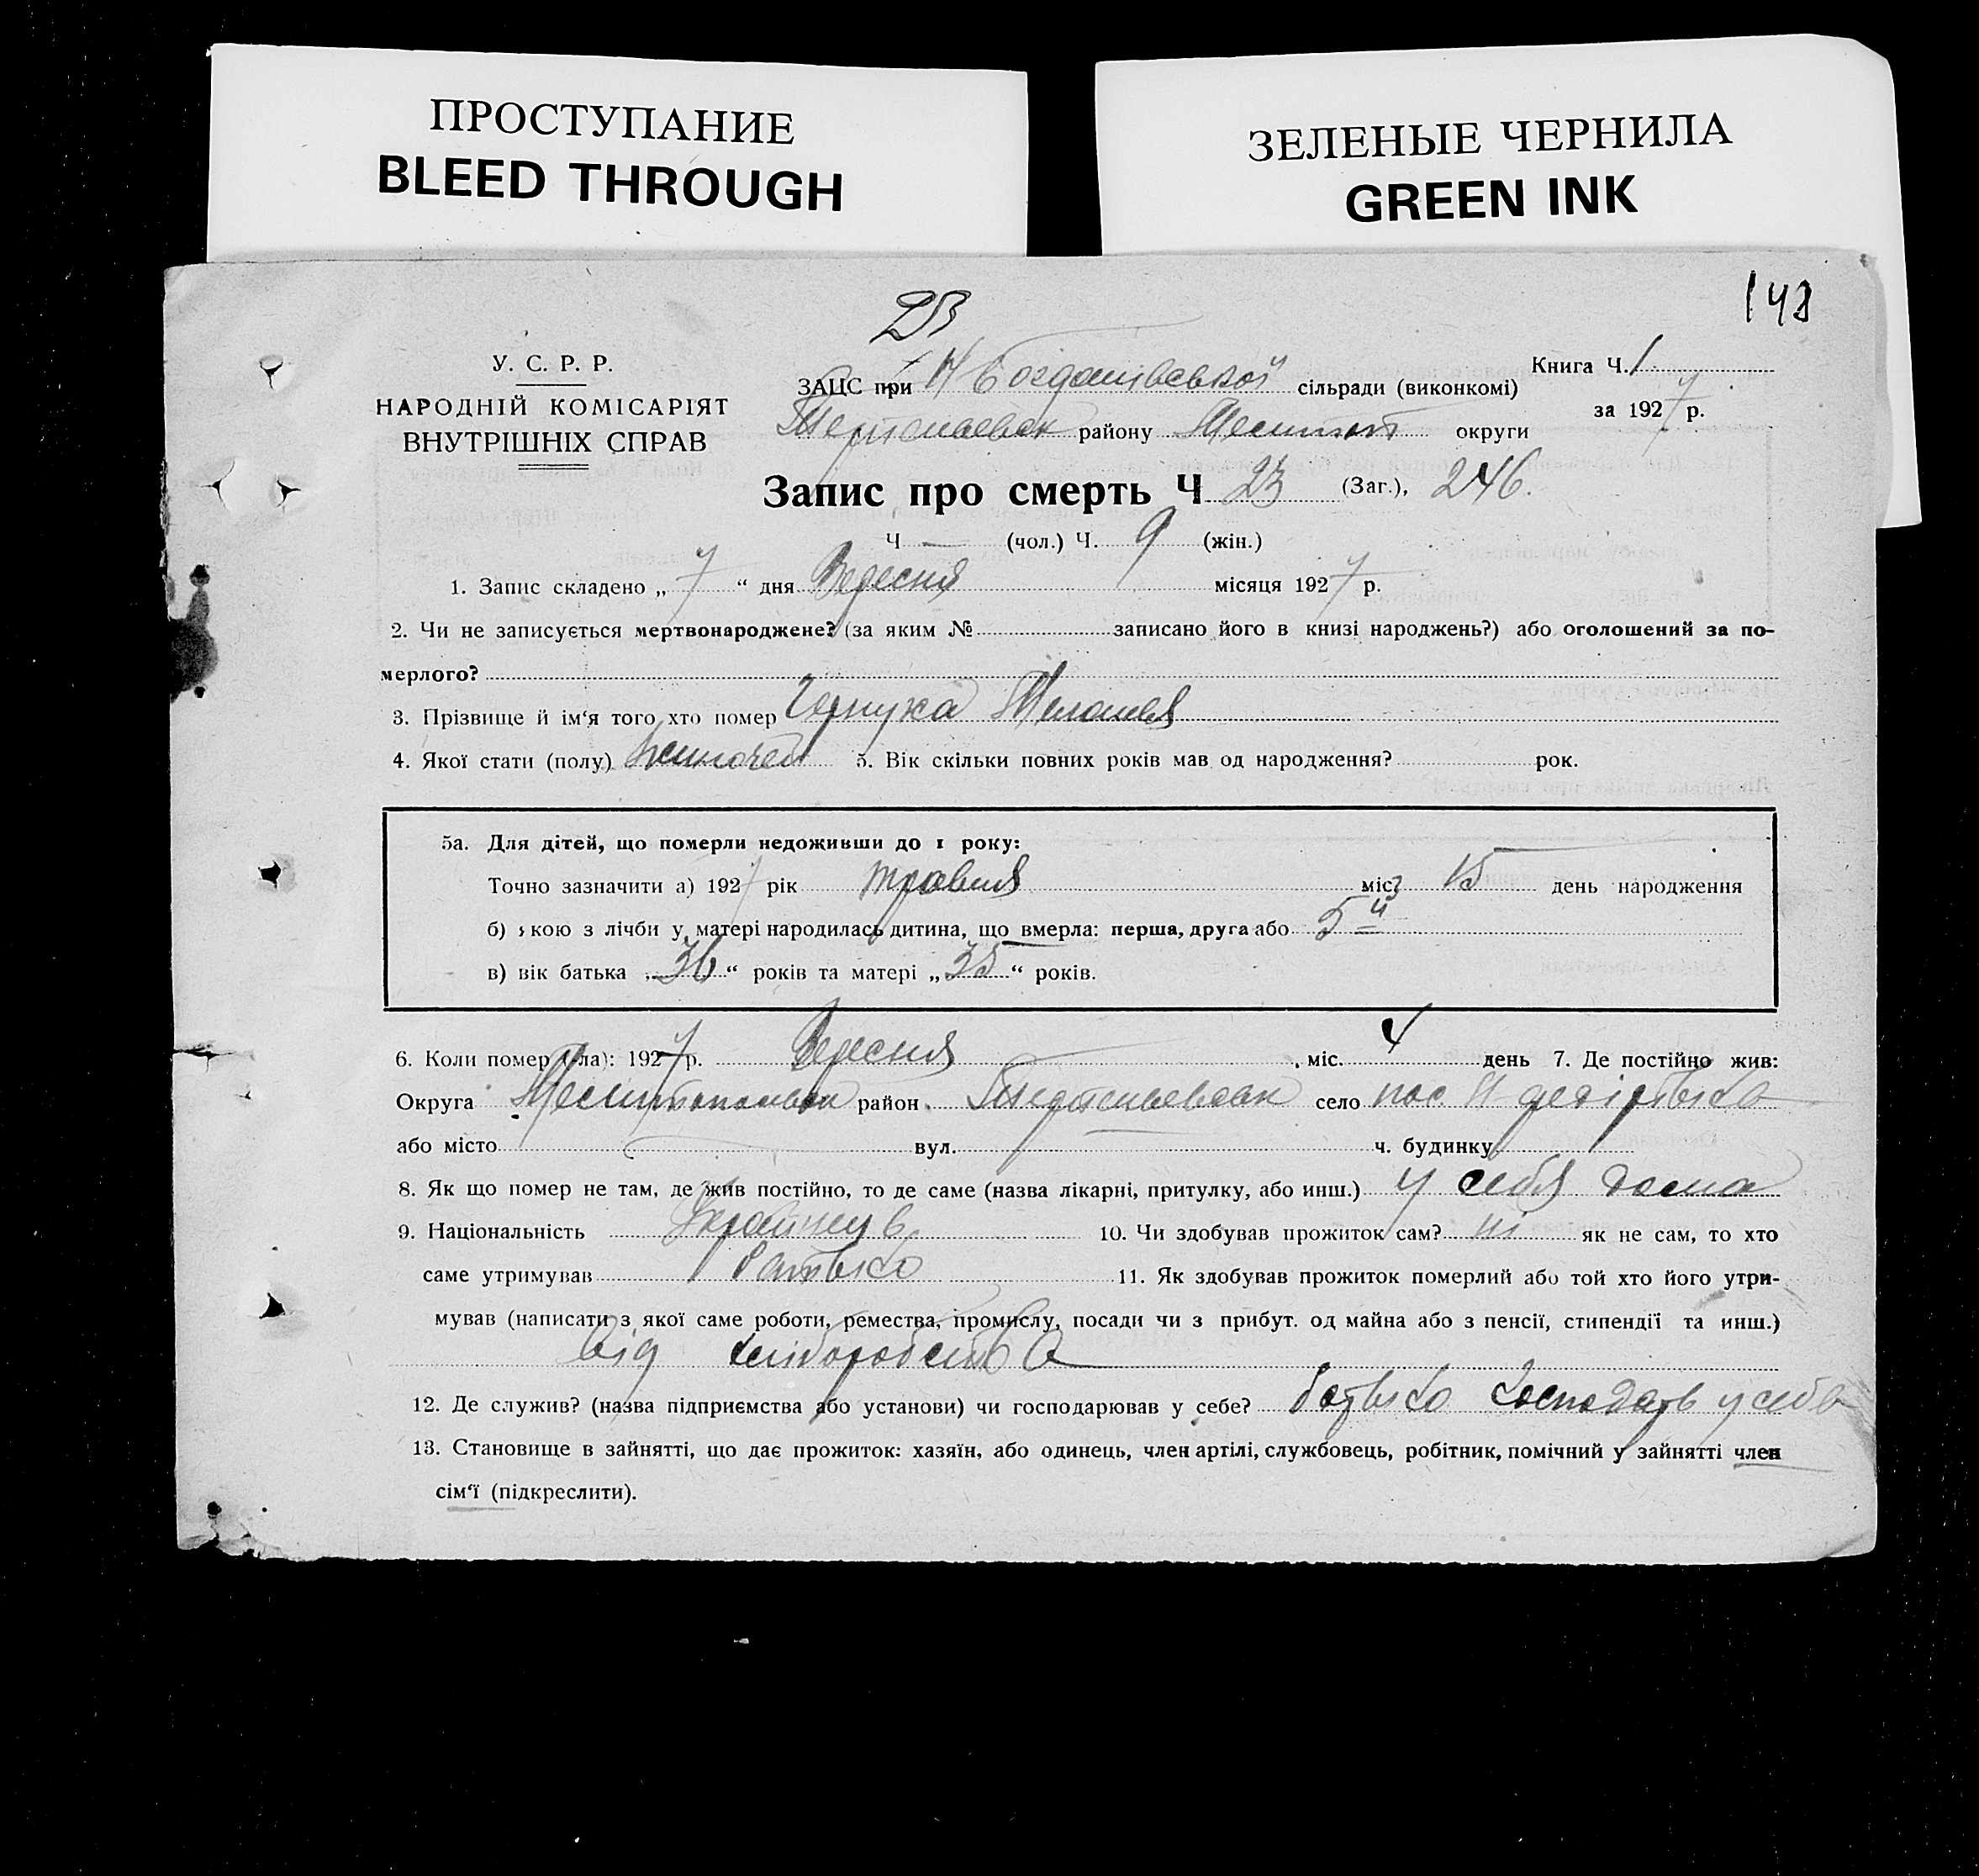 ПРОСТУПАНИЕ
BLEED THROUGH
ЗЕЛЕНЫЕ ЧЕРНИЛА
GREEN INK
148
23
У. С. Р. Р.
НАРОДНІЙ КОМІСАРІЯТ
ВНУТРІШНІХ СПРАВ
Книга Ч. 1
за 1927 р.
ЗАЦС при Н Богданівської сільради (виконкомі)
району Мелитоп округи
Запис про смерть Ч 23 (Заг.), 246.
Ч — (чол.) Ч. 9 (жін.)
1. Запис складено „ 7 “ дня Вересня місяця 1927 р.
2. Чи не записується мертвонароджене? (за яким № записано його в книзі народжень?) або оголошений за по-
мерлого?
3. Прізвище й ім‘я того хто помер Чернуха Меланія
4. Якої стати (полу) жиночей 5. Вік скільки повних років мав од народження? рок.
5а. Для дітей, що померли недоживши до 1 року:
Точно зазначити а) 1927 рік травня міс. 15 день народження
б) якою з лічби у матері народилась дитина, що вмерла: перша, друга або 5 й
в) вік батька „36“ років та матері „35“ років.
6. Коли помер (ла): 1927 р. Вересня міс. 4 день 7. Де постійно жив:
Округа район село пос. Н
або місто вул. ч. будинку
8. Як що помер не там, де жив постійно, то де саме (назва лікарні, притулку, або инш.) у себя дома
9. Національність 10. Чи здобував прожиток сам? ні як не сам, то хто
саме утримував батько 11. Як здобував прожиток померлий або той хто його утри-
мував (написати з якої саме роботи, ремества, промислу, посади чи з прибут. од майна або з пенсії, стипендії та инш.)
від хліборобства
12. Де служив? (назва підприємства або установи) чи господарював у себе? батько господарь у себе
13. Становище в зайнятті, що дає прожиток: хазяїн, або одинець, член артілі, службовець, робітник, помічний у зайнятті член
сім‘ї (підкреслити).